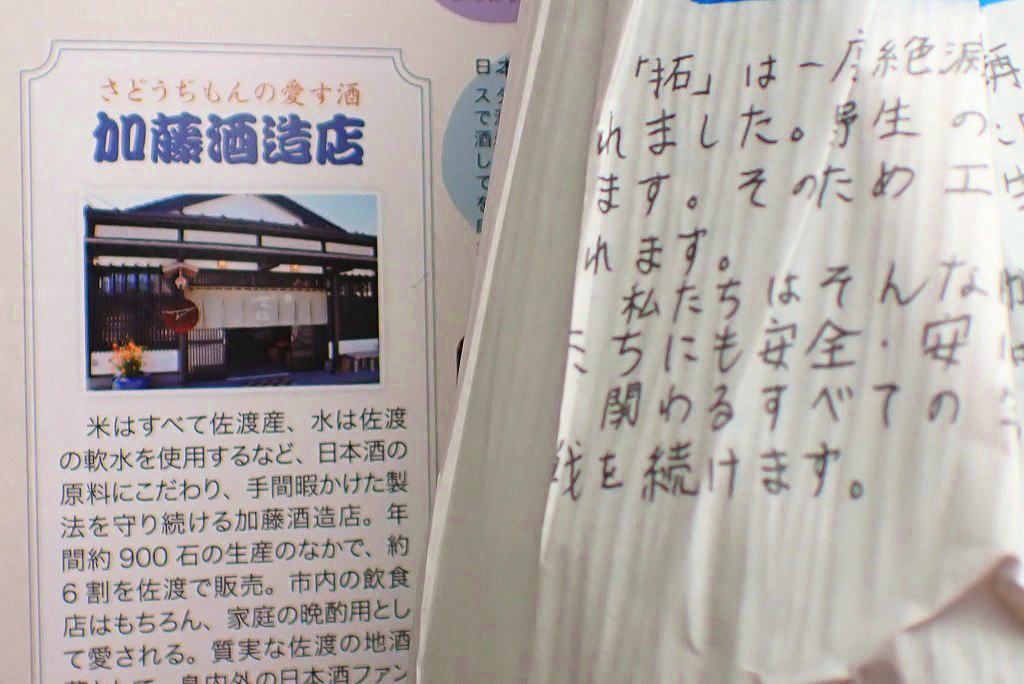 さどうぢもんの愛す酒
加藤酒造店
米はすべて佐渡産、水は佐渡
の軟水を使用するなど、日本酒の
原料にこだわり、手間暇かけた製
法を守り続ける加藤酒造店。年
間約900石の生産のなかで、約
6割を佐渡で販売。市内の飲食
店はもちろん、家庭の晩酌用とし
て愛される。質実な佐渡の地酒
島内外の日本酒ファン
日本
スで
酒
して
「拓」は一度絶滅
れました。野生の
ます。そのため工
れます。
私たちはそんな
たちにも安全・安
関わるすべての
戦を続けます。